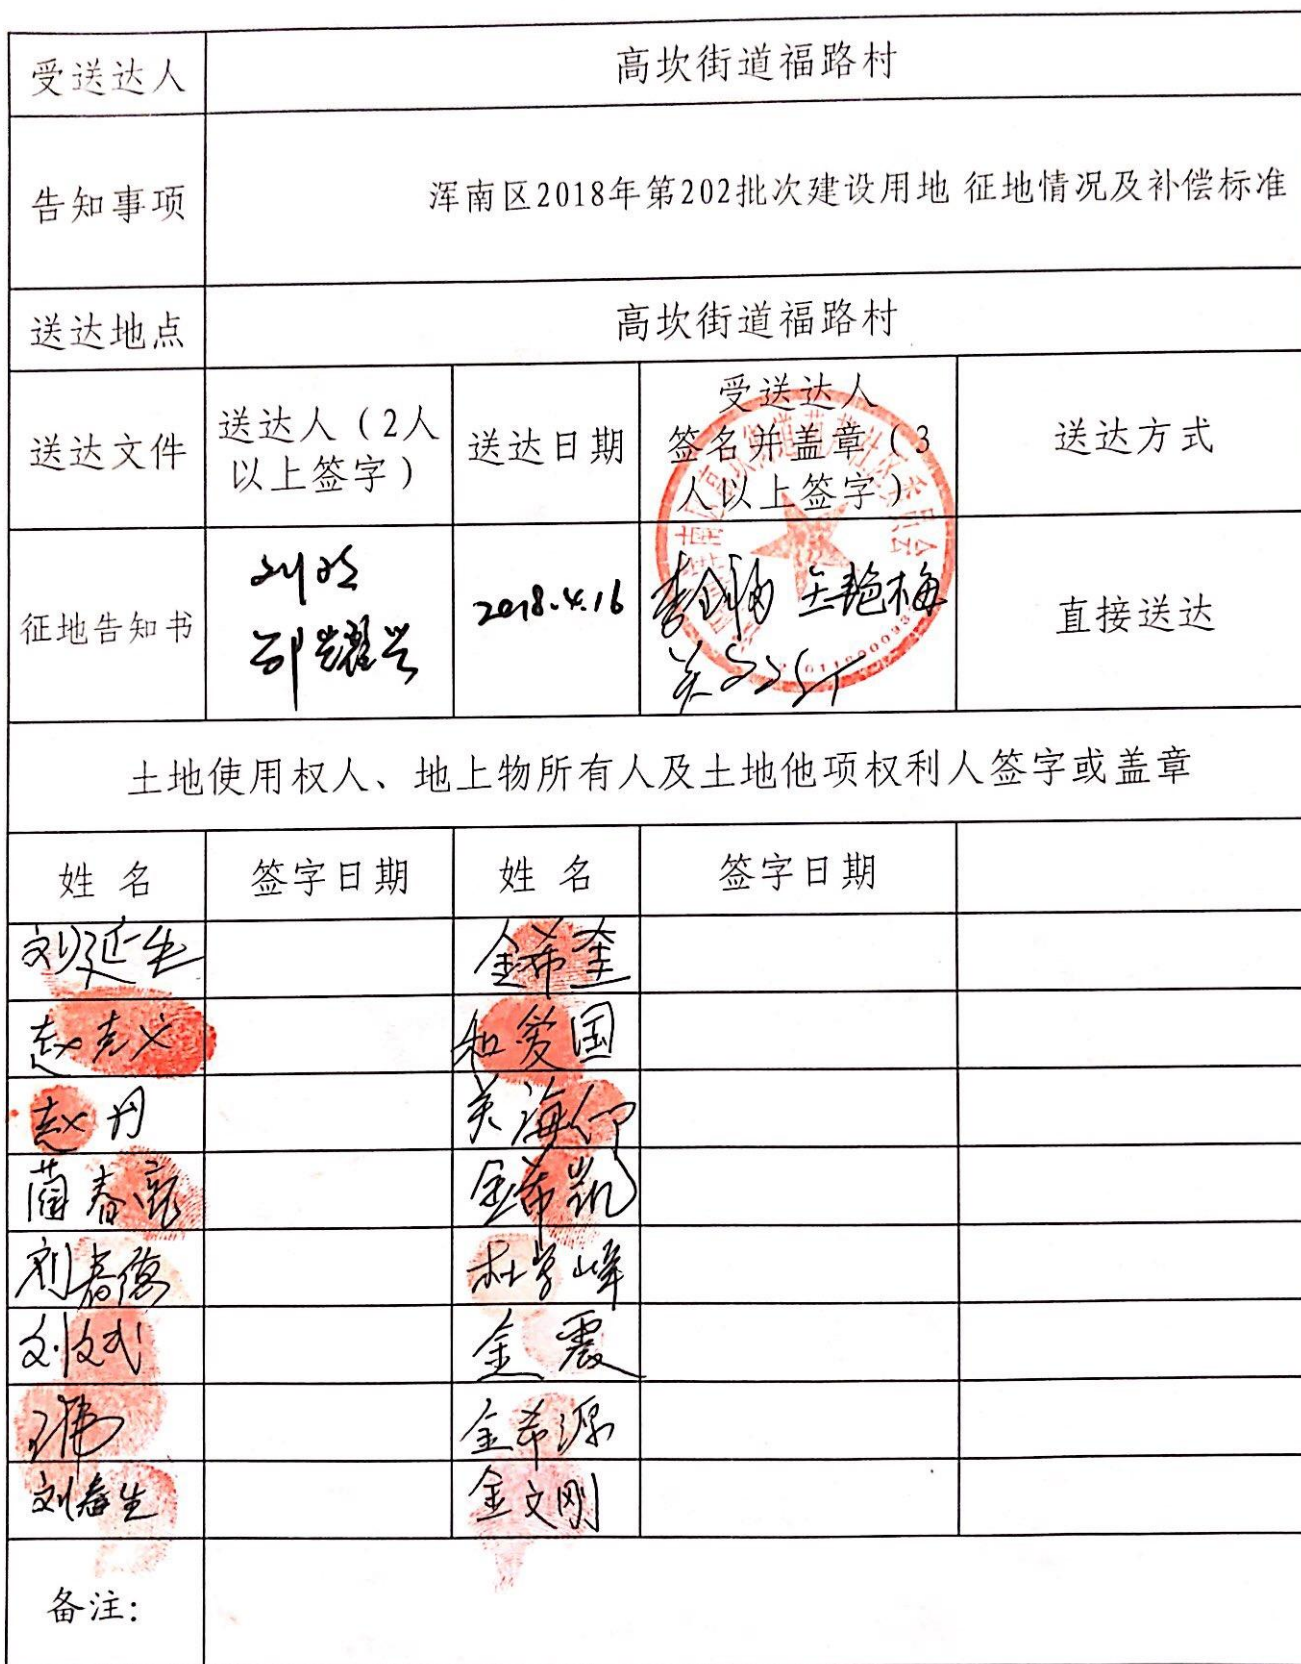 受送达人
高坎街道福路村
告知事项
浑南区2018年第202批次建设用地 征地情况及补偿标准
送达地点
高坎街道福路村
送达文件
送达人（2人
以上签字）
送达日期
受送达人
签名并盖章（3
人以上签字）
送达方式
征地告知书
邵耀兴
2018.4.16
王艳梅
直接送达
土地使用权人、地上物所有人及土地他项权利人签字或盖章
姓 名
签字日期
姓 名
签字日期
刘延生
金希奎
赵志义
和爱国
赵丹
关海
蔺春
金希凯
刘春德
杜学峰
刘文武
金震
王伟
金希源
刘春生
金文刚
备注：